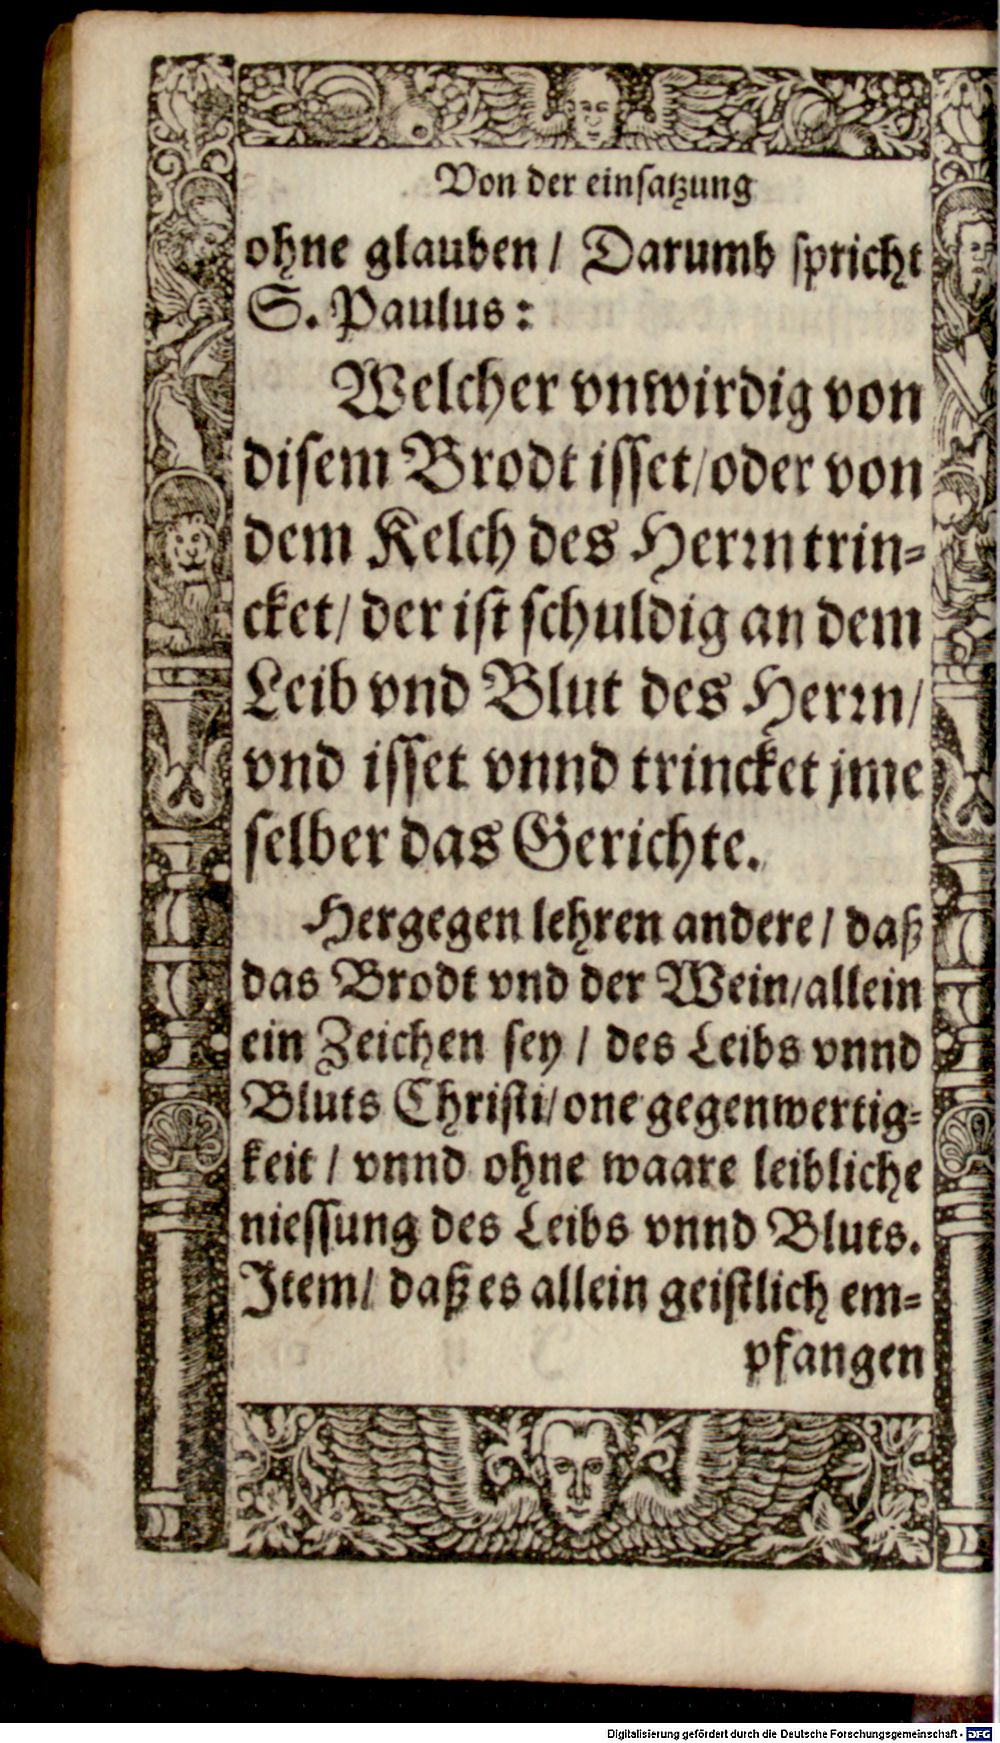 Von der einsatzung
ohne glauben / Darumb spricht
S. Paulus:
Welcher vnwirdig von
disem Brodt isset/ oder von
dem Kelch des Herrn trin-
cket/ der ist schuldig an dem
Leib vnd Blut des Herrn/
vnd isset vnnd trincket jme
selber das Gerichte.
Hergegen lehren andere / daß
das Brodt vnd der Wein/ allein
ein Zeichen sey / des Leibs vnnd
Bluts Christi/ one gegenwertig-
keit / vnnd ohne waare leibliche
niessung des Leibs vnnd Bluts.
Item/ daß es allein geistlich em-
pfangen
Digitalisierung gefördert durch die Deutsche Forschungsgemeinschaft - DFG